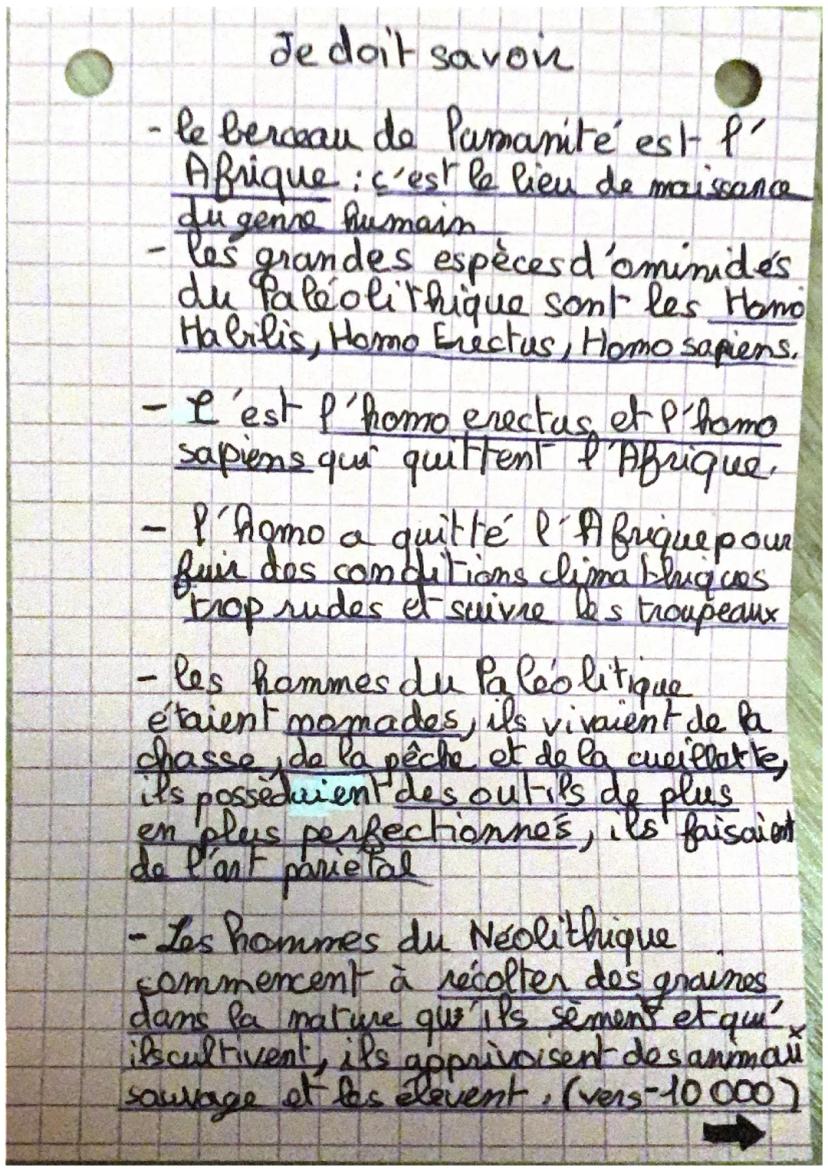 Je doit savoir
- le berceau de l'umanité est l'
Afrique : c'est le lieu de naissance
du genre humain
- les grandes espèces d'ominidés
du Paléolithique sont les Homo
Habilis, Homo Erectus, Homo sapiens.
- C'est l'homo erectus et l'homo
sapiens qui quittent l'Afrique.
- l'homo a quitté l'Afrique pour
fuir des conditions climathiques
trop rudes et suivre les troupeaux
- les hommes du Paléolitique
étaient nomades, ils vivaient de la
chasse, de la pêche et de la cueillette,
ils possèdaient des outils de plus
en plus perfectionnés, ils faisaient
de l'art pariétal
- Les hommes du Néolithique
commencent à récolter des graines
dans la nature qu'ils sèment et qu'
ils cultivent, ils apprivoisent des animaux
sauvage et les élèvent. (vers -10 000)